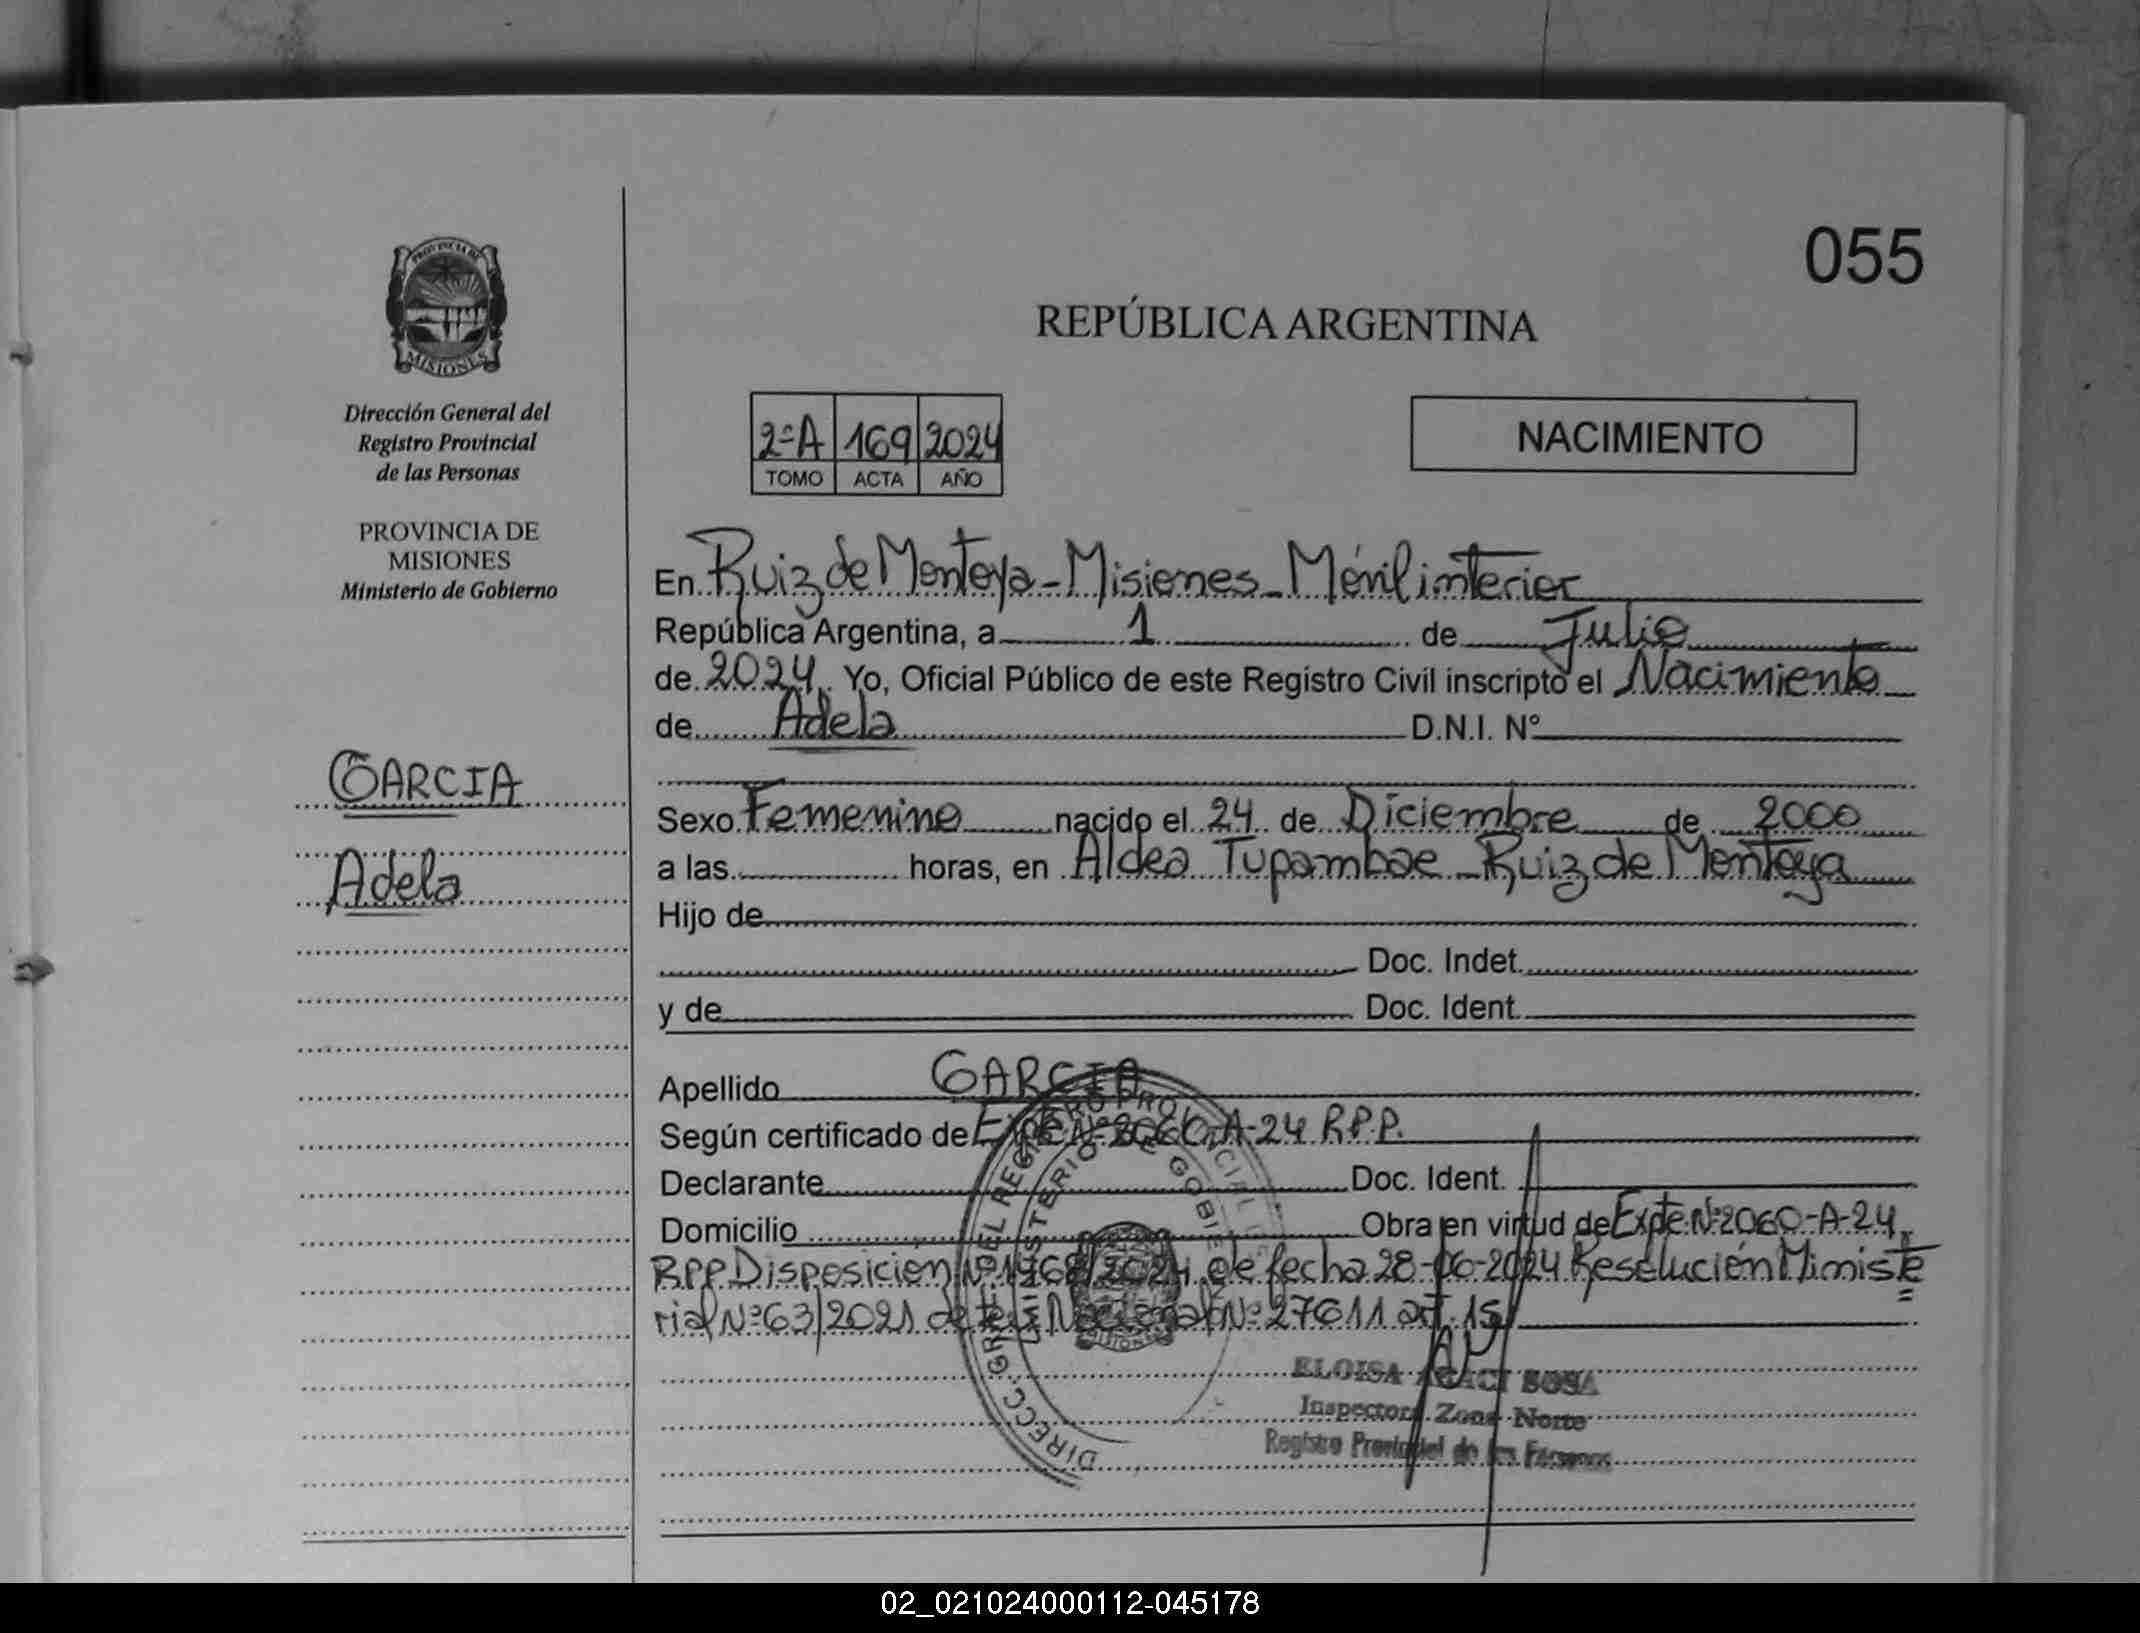 055
REPÚBLICA ARGENTINA
PROVINCIA DE
MISIONES
Dirección General del
Registro Provincial
de las Personas
PROVINCIA DE
MISIONES
Ministerio de Gobierno
GARCIA
Adela
2ºA 169 2024
TOMO ACTA AÑO
NACIMIENTO
En Ruiz de Montoya - Misiones - Móvil interior
República Argentina, a 1 de Julio
de 2024. Yo, Oficial Público de este Registro Civil inscripto el Nacimiento
de Adela D.N.I. Nº
Sexo Femenino nacido el 24 de Diciembre de 2000
a las horas, en Aldea Tupambae - Ruiz de Montoya
Hijo de
Doc. Indet.
y de Doc. Ident.
Apellido GARCIA
Según certificado de Expte Nº 2060-A-24 R.P.P.
Declarante Doc. Ident.
Domicilio Obra en virtud de Expte. Nº 2060-A-24
RPP Disposición Nº 1768/2024 de fecha 28-06-2024 Resolución Ministe
rial Nº 63/2021 de Ley Nacional Nº 27611 art. 15
DIRECC. GRAL. DEL REGISTRO PROVINCIAL
MINISTERIO DE GOBIE
MISIONES
ELOISA SOSA
Inspectora Zona Norte
Registro Provincial de las Personas
02_021024000112-045178